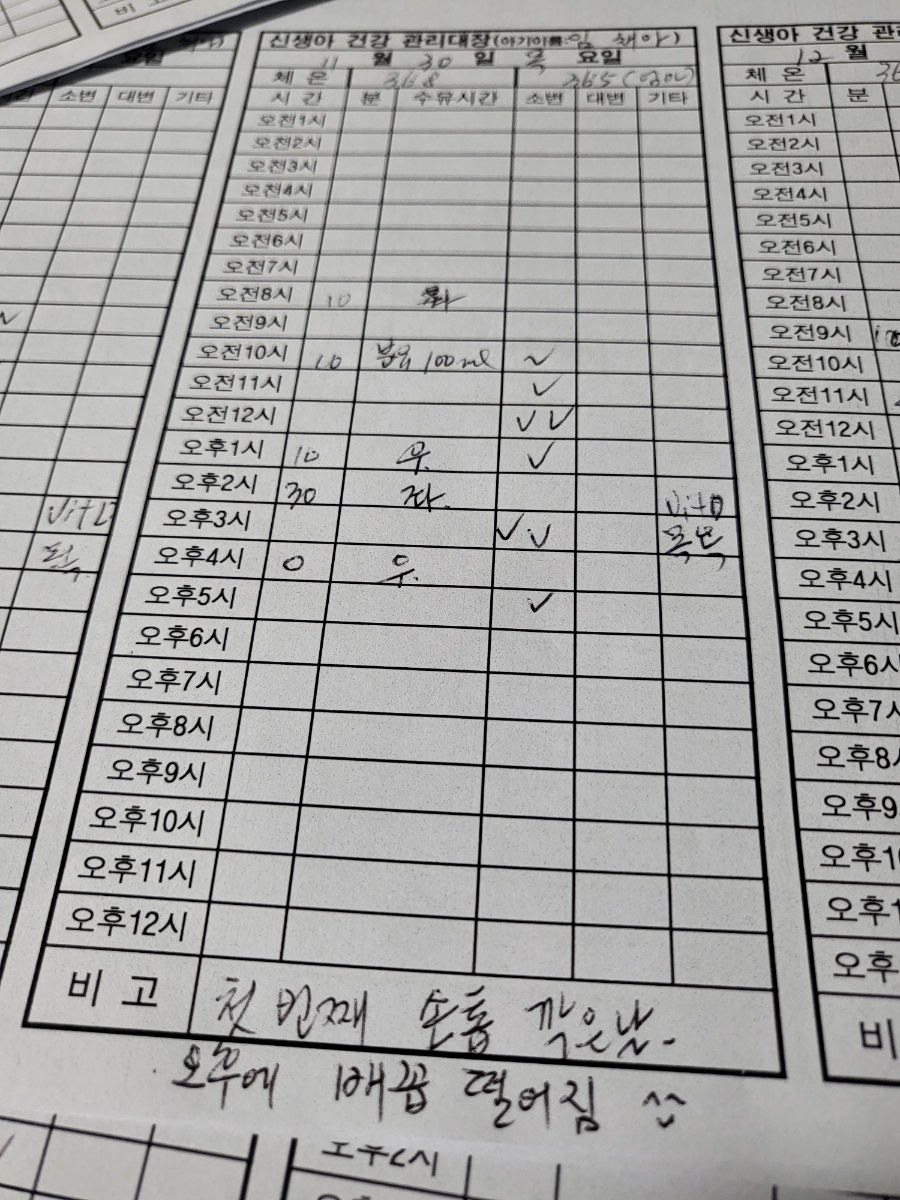 비 고
요일
소변 대변 기타
Vit D
신생아 건강 관리대장(아기이름:임 채아)
11 월 30 일 목 요일
체 온 36.8 36.5(엄마)
시 간 분 수유시간 소변 대변 기타
오전1시
오전2시
오전3시
오전4시
오전5시
오전6시
오전7시
오전8시 10 좌
오전9시
오전10시 10 분유 100ml ~
오전11시 ✓
오전12시 ✓✓
오후1시 10 우. ✓
오후2시 30 좌. Vit D
오후3시 ✓✓ 목욕
오후4시 0 우.
오후5시 ✓
오후6시
오후7시
오후8시
오후9시
오후10시
오후11시
오후12시
비 고 첫 번째 손톱 깍은날.
오후에 배꼽 떨어짐 ^^
신생아 건강 관
12 월
체 온 36
시 간 분
오전1시
오전2시
오전3시
오전4시
오전5시
오전6시
오전7시
오전8시
오전9시
오전10시
오전11시
오전12시
오후1시
오후2시
오후3시
오후4시
오후5시
오후6시
오후7시
오후8
오후9
오후10
오후1
오후
비
오후2시